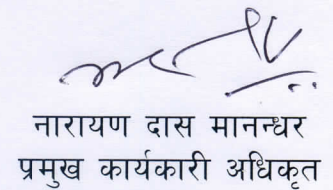 नारायण दास मानन्धर
प्रमुख कार्यकारी अधिकृत